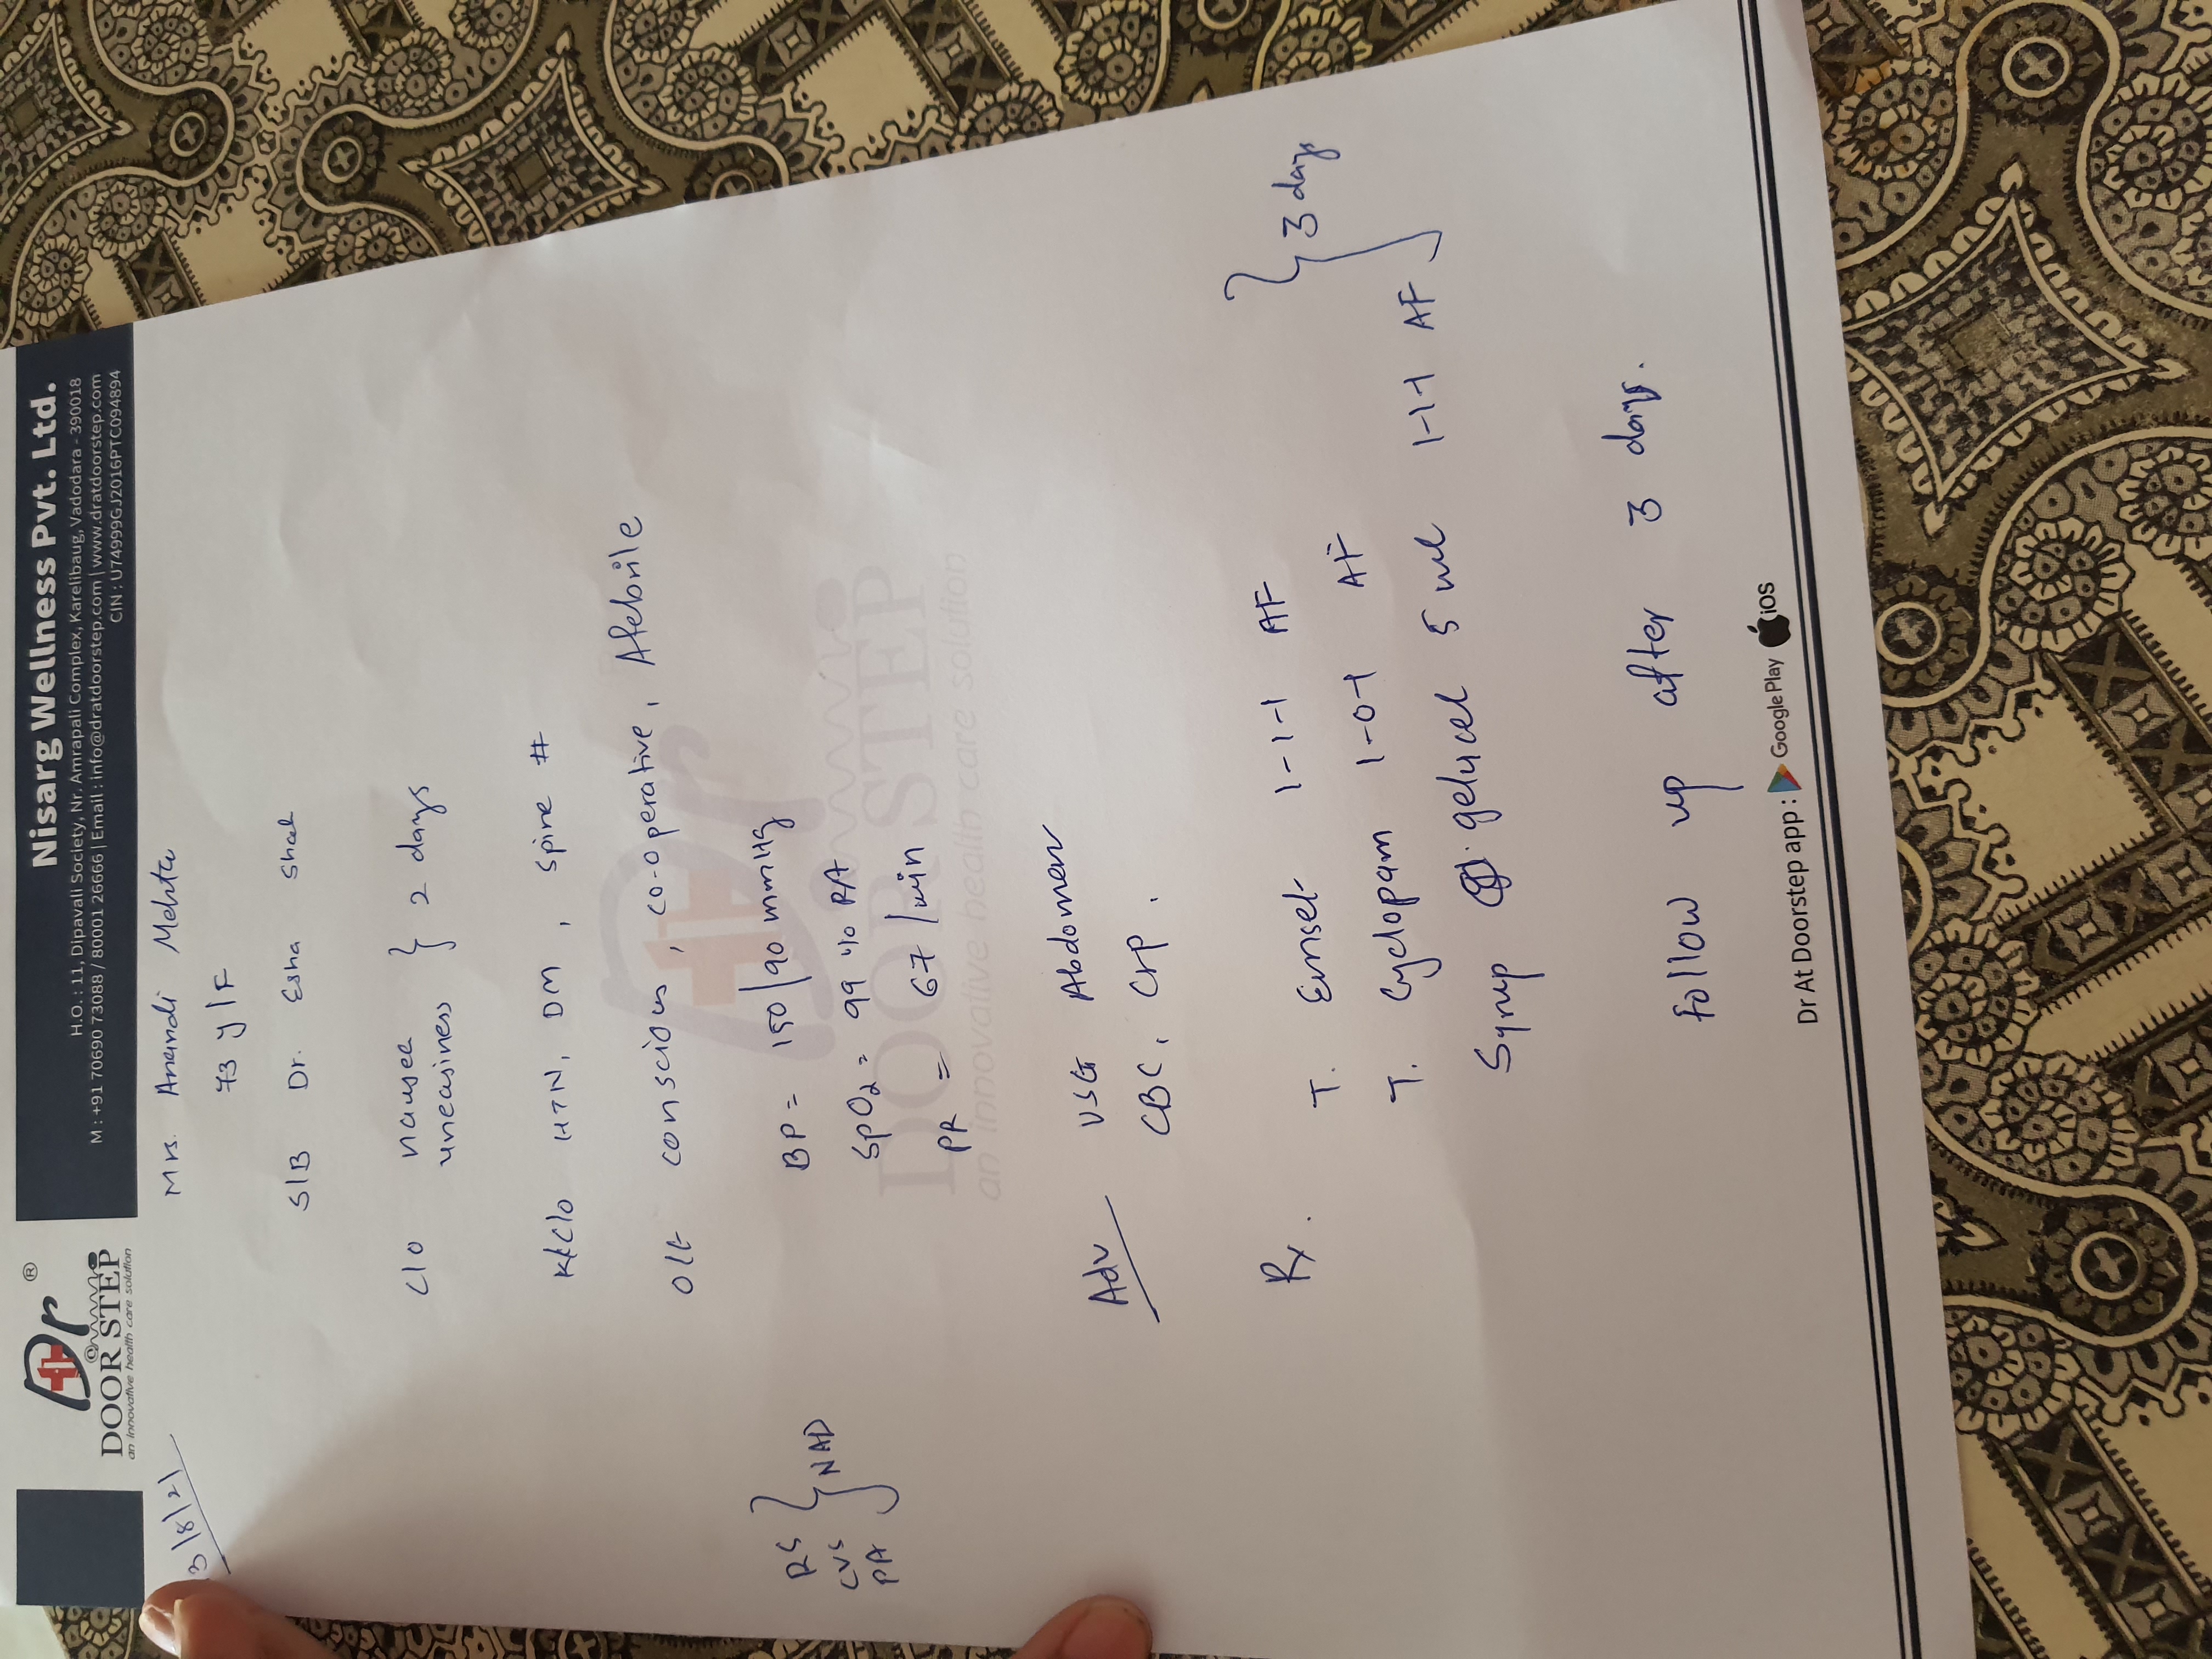 Dr ®
DOOR STEP
an innovative health care solution
Nisarg Wellness Pvt. Ltd.
H.O. : 11, Dipavali Society, Nr. Amrapali Complex, Karelibaug, Vadodara - 390018
M : +91 70690 73088 / 80001 26666 | Email : info@dratdoorstep.com | www.dratdoorstep.com
CIN : U74999GJ2016PTC094894
3/8/21
Mrs. Anandi Mehta
73 y/F
S/B Dr. Esha Shah
C/o nausea
uneasiness } 2 days
K/C/o HTN, DM, Spine #
O/E conscious, co-operative, Afebrile
RS
CVS
PA
} NAD
BP = 150/90 mmHg
SpO2 = 99 % RA
PR = 67 /min
Dr
DOOR STEP
an innovative health care solution
Adv USG Abdomen
CBC, Crp.
Rx.
T. Emset 1-1-1 AF
T. Cyclopam 1-0-1 AF
Syrup gelucel 5 ml 1-1-1 AF
} 3 days
Follow up after 3 days.
Dr At Doorstep app : Google Play iOS